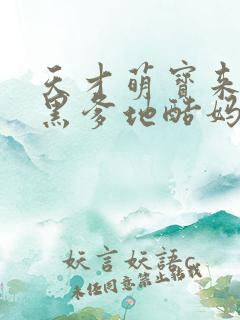 天才萌寶来
黑爹地酷妈
妖言妖語c
未经同意禁止转载